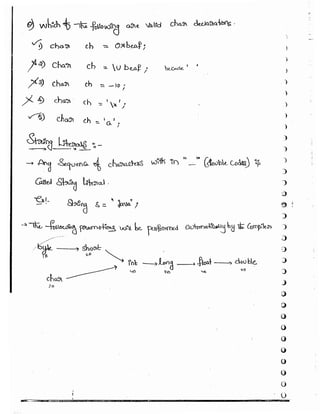 Q) which of the following are valid char declarations.
✓1) char ch = 0xbeaf;
✗2) char ch = \u beaf; because ' '
✗3) char ch = -10;
✗4) char ch = '\*';
✓5) char ch = 'a';
String Literals :-
→ Any Sequence of characters with in "_" (double Codes) is
Called String literal.
Ex:- String s = "Java";
→ The following promotions will be performed automatically by the Compiler
byte → short
→ int → long → float → double
char